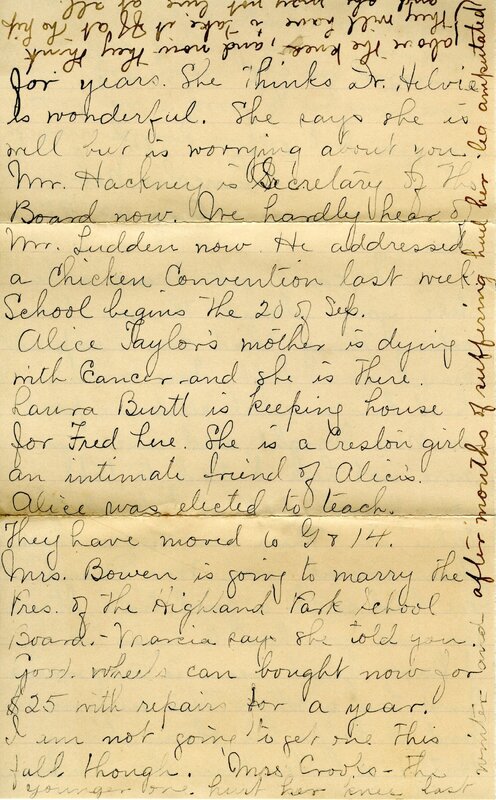 for years. She thinks Dr. Hilvie
is wonderful. She says she is
well but is worrying about you
Mr. Hackney is Secretary of the
Board now. We hardly hear of
Mr. Ludden now. He addressed
a Chicken Convention last week
School begins the 20 of Sep.
Alice Taylor's mother is dying
with Cancer and she is there.
Laura Burtl is keeping house
for Fred here. She is a Creston girl
an intimate friend of Alice's.
Alice was elected to teach.
They have moved to 9 & 14.
Mrs. Bowen is going to marry the
Pres. of the Highland Park School
Board. - Marcia says she told you.
Good wheels can bought now for
$25 with repairs for a year.
I am not going to get one this
fall though. Mrs Crooks - the
younger one hurt her knee last
winter and after months of suffering had her leg amputated
above the knee, and now they think
they will have to take it off at the hip
and she may not live at all.